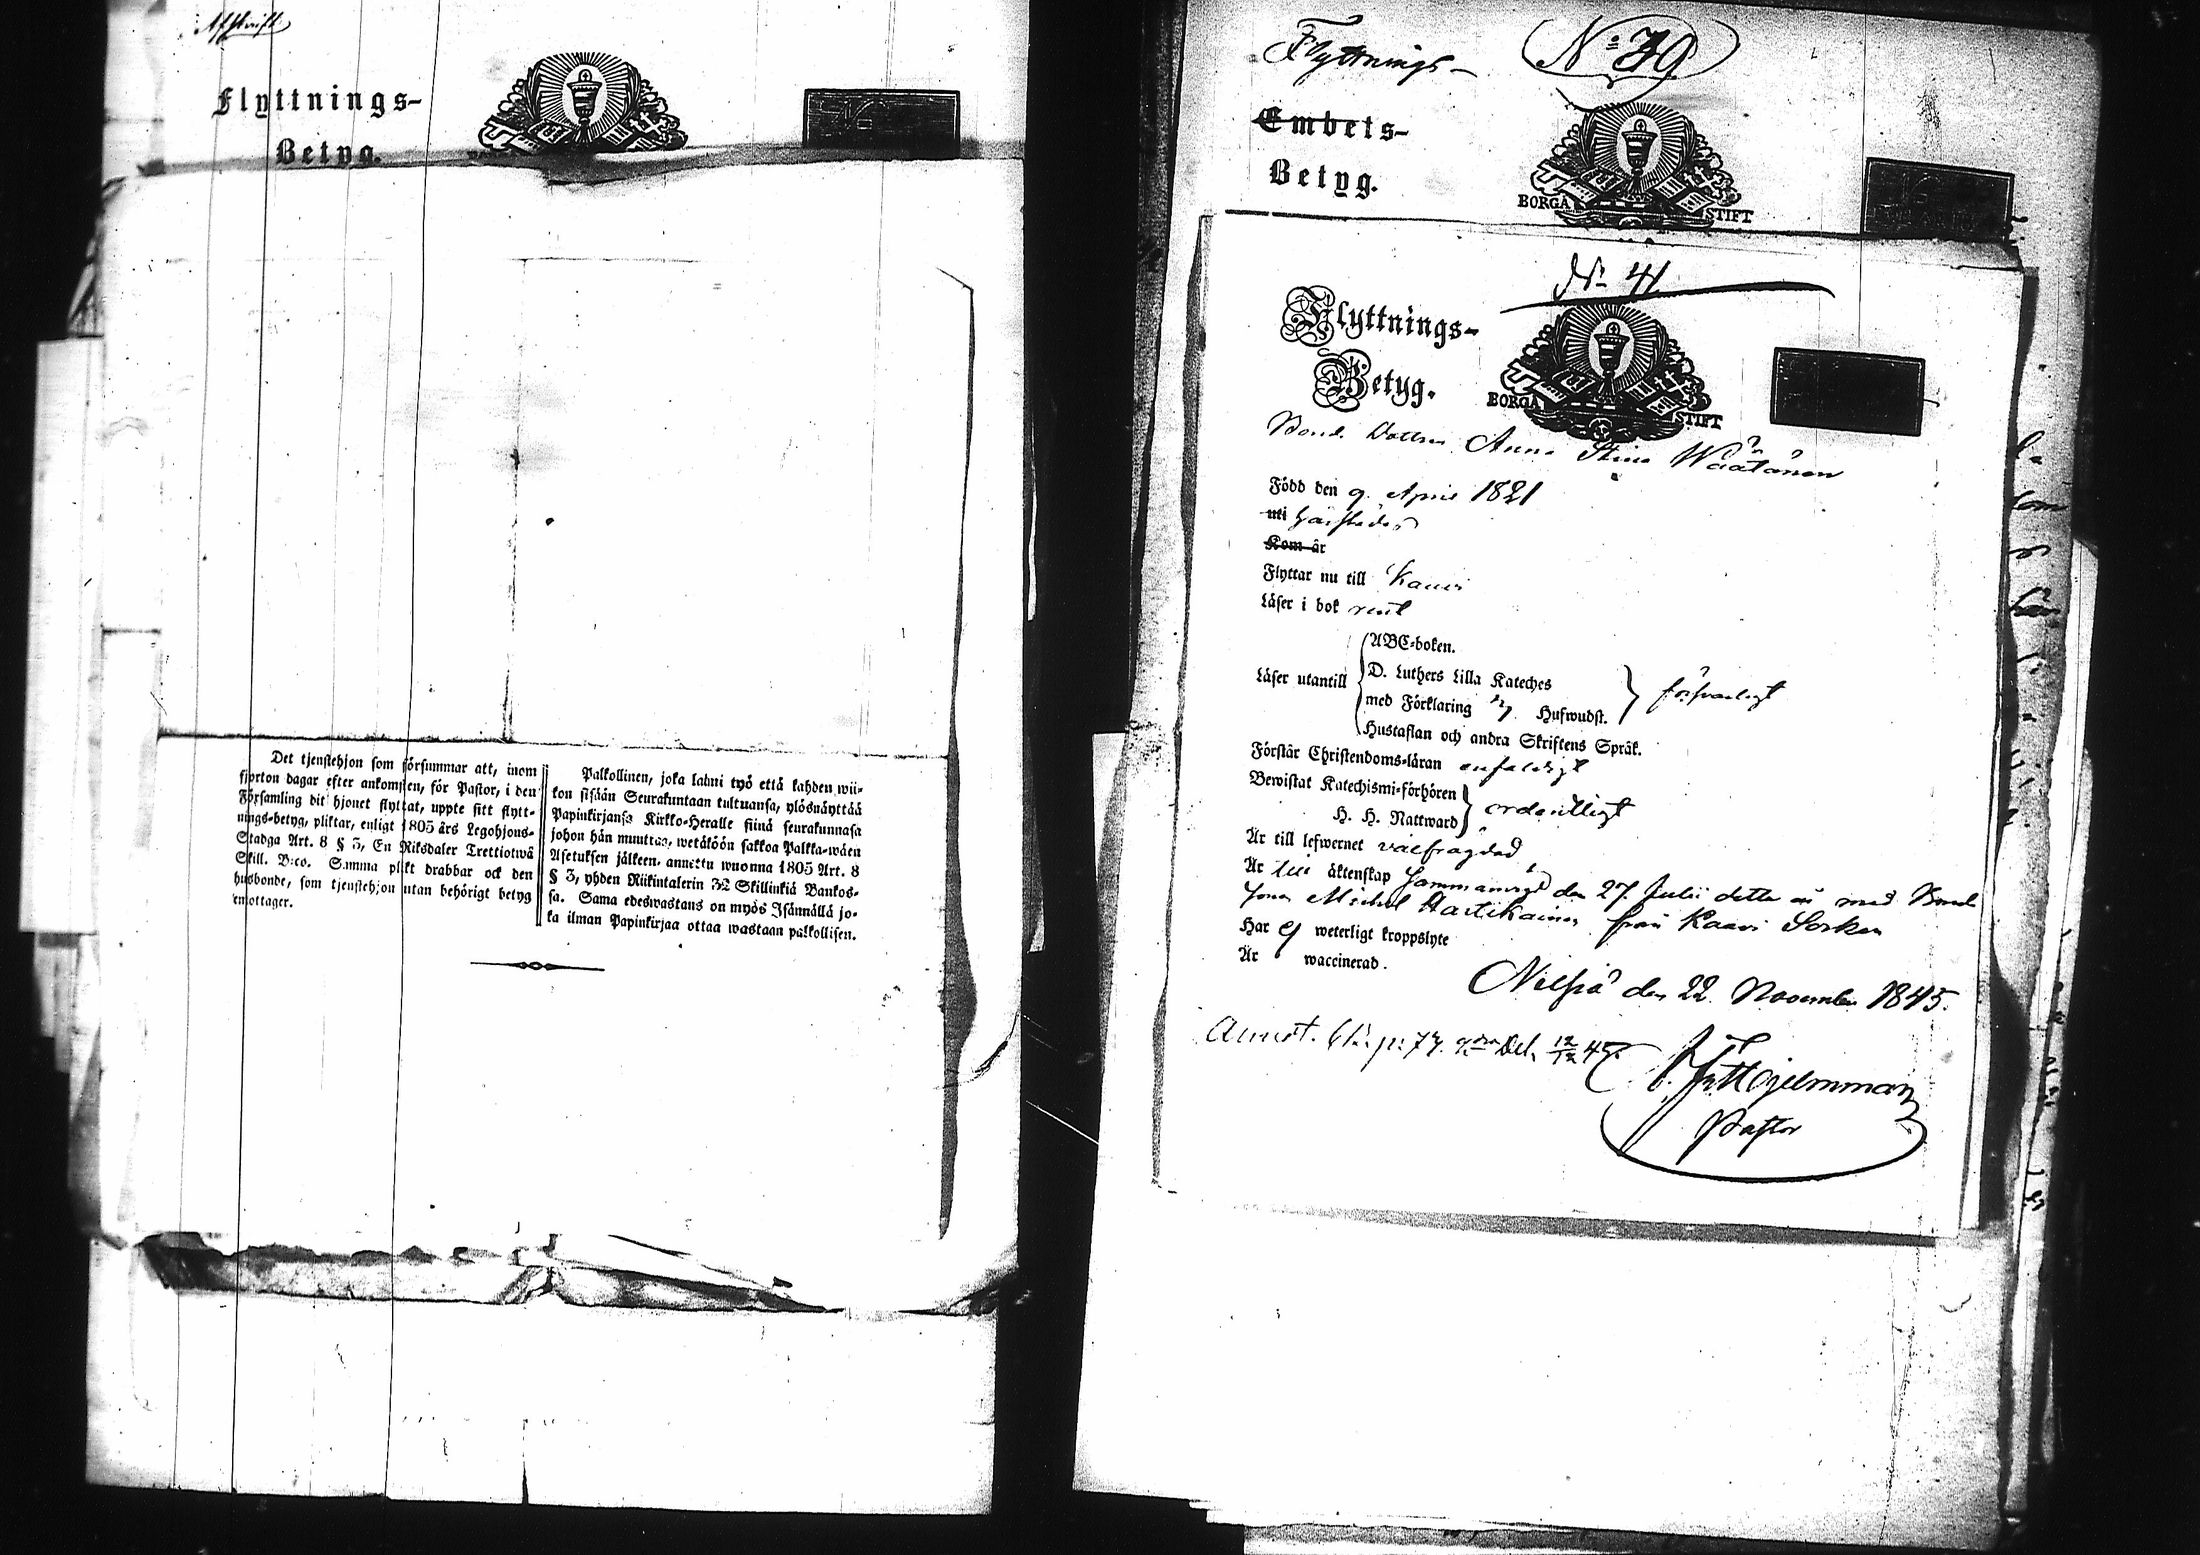 Afskrift
Flyttnings-
Betyg.
Det tjenstehjon som försummar att, inom
fjorton dagar efter ankomsten, för Pastor, i den
Församling dit hjonet flyttat, uppte sitt flytt-
nings-betyg, pliktar, enligt 1805 års Legohjons-
Stadga Art. 8 § 3, En Riksdaler Trettiotwå
Skill. B:co. Samma plikt drabbar ock den
husbonde, som tjenstehjon utan behörigt betyg
emottager.
Palkollinen, joka laimi lyö että kahden wii-
kon sisään Seurakuntaan tultuansa, ylösnäyttää
Papinkirjansa Kirkko-Heralle siinä seurakunnasa
johon hän muuttaa, wetäköön sakkoa Palkka-wäen
Asetuksen jälkeen, annettu wuonna 1805 Art. 8
§ 3, yhden Riikintalerin 32 Skillinkiä Bankos-
sa. Sama edeswastaus on myös Isännällä jo-
ka ilman Papinkirjaa ottaa wastaan palkollisen.
Flyttnings-
No 70
Embets-
Betyg.
BORGÅ STIFT
No 41
Flyttnings-
Betyg.
BORGÅ STIFT
Bond. Dottren Anna Stina Wäätänen
Född den 9. April 1821
uti härstädes
Kom år
Flyttar nu till Kaavi
Läser i bok rent
Läser utantill
ABC-boken.
D. Luthers Lilla Kateches
med Förklaring Hufwudst.
Hustaflan och andra Skriftens Språk.
försvarligt
Förstår Christendoms-läran enfaldigt
Bewistat Katechismi-förhören
H. H. Nattward
ordentligt
Är till lefwernet välfrägdad
Är till äktenskap sammanvigd den 27 Julii detta år med Bond
sonen Michel Hartikainen från Kaavi Socken
Har ej weterligt kroppslyte
Är waccinerad.
Nilsiä den 22 November 1845.
Hjelmman
Pastor